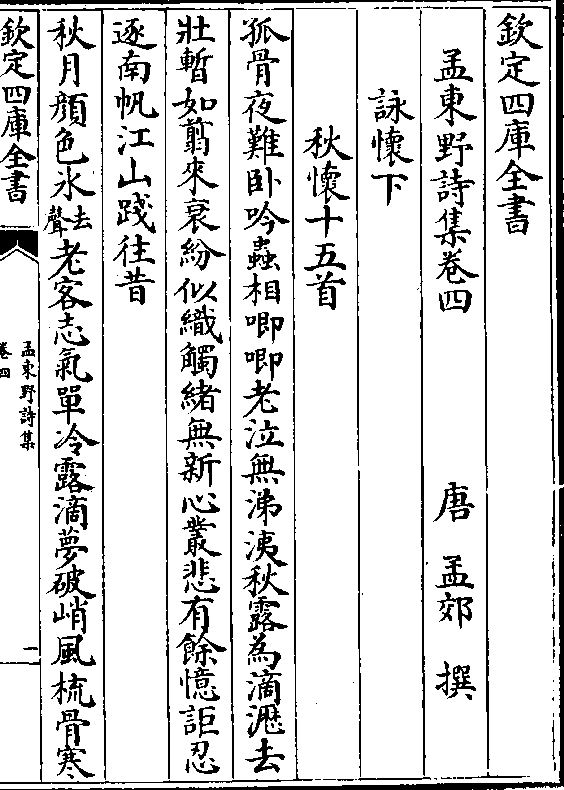 欽定四庫全書
孟東野詩集卷四　唐　孟郊　撰
詠懷下
秋懷十五首
孤骨夜難卧吟蟲相唧唧老泣無涕洟秋露為滴瀝去
壯暫如翦來衰紛似織觸緒無新心叢悲有餘憶詎忍
逐南帆江山踐往昔
秋月顔色氷去聲老客志氣單冷露滴夢破峭風梳骨寒
欽定四庫全書
孟東野詩集
卷四
一